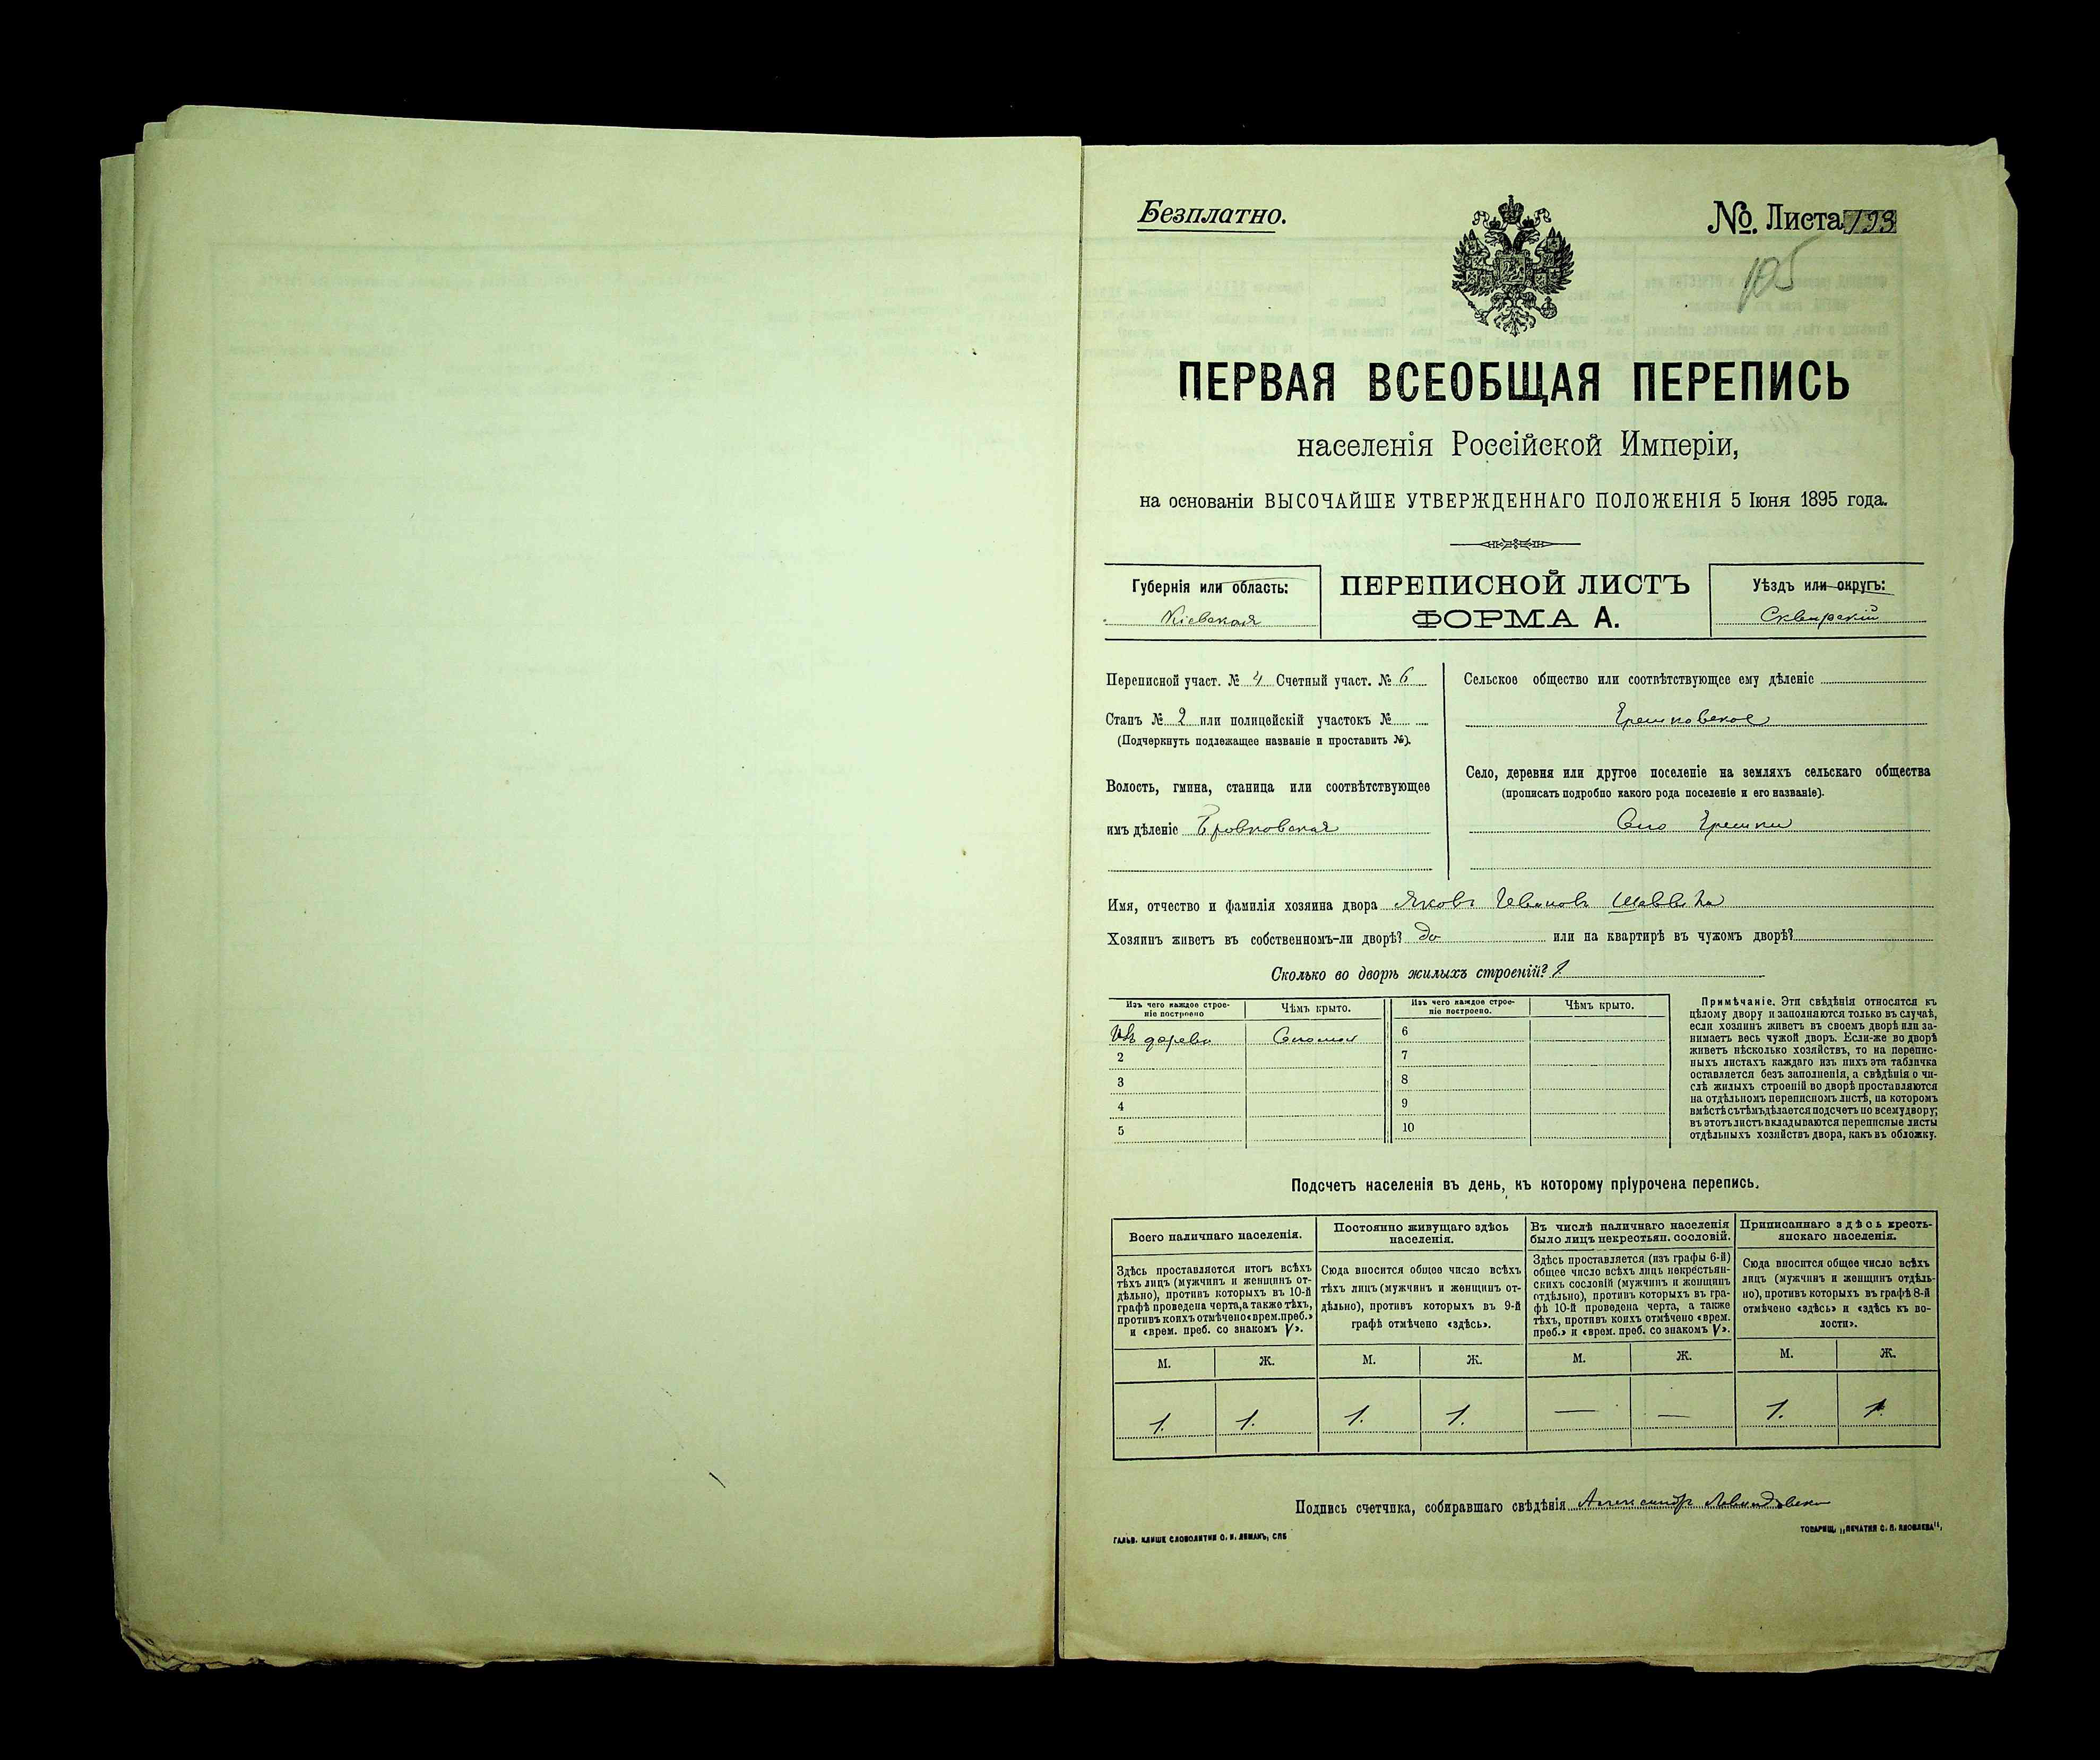 Безплатно.
№. Листа 193
105
ПЕРВАЯ ВСЕОБЩАЯ ПЕРЕПИСЬ
населенія Россійской Имперіи,
на основаніи ВЫСОЧАЙШЕ УТВЕРЖДЕННАГО ПОЛОЖЕНІЯ 5 Іюня 1895 года.
Губернія или область:
Кіевская
ПЕРЕПИСНОЙ ЛИСТЪ
ФОРМА А.
Уѣздъ или округъ:
Сквирскій
Переписной участ. № 4 Счетный участ. № 6
Станъ № 2 или полицейскій участокъ №
(Подчеркнуть подлежащее названіе и проставить №).
Волость, гмина, станица или соотвѣтствующее
имъ дѣленіе Бровковская
Сельское общество или соотвѣтствующее ему дѣленіе
Грешковское
Село, деревня или другое поселеніе на земляхъ сельскаго общества
(прописать подробно какого рода поселеніе и его названіе).
Село Грешки
Имя, отчество и фамилія хозяина двора Яковъ Ивановъ
Хозяинъ живетъ въ собственномъ-ли дворѣ? да или на квартирѣ въ чужомъ дворѣ?
Сколько во дворѣ жилыхъ строеній? 1
Изъ чего каждое строе-
ніе построено
Чѣмъ крыто.
Изъ дерева
Соломой
2
3
4
5
Изъ чего каждое строе-
ніе построено.
Чѣмъ крыто.
6
7
8
9
10
Примѣчаніе. Эти свѣдѣнія относятся къ
цѣлому двору и заполняются только въ случаѣ,
если хозяинъ живетъ въ своемъ дворѣ или за-
нимаетъ весь чужой дворъ. Если-же во дворѣ
живетъ нѣсколько хозяйствъ, то на перепис-
ныхъ листахъ каждаго изъ нихъ эта табличка
оставляется безъ заполненія, а свѣдѣнія о чи-
слѣ жилыхъ строеній во дворѣ проставляются
на отдѣльномъ переписномъ листѣ, на которомъ
вмѣстѣ съ тѣмъ дѣлается подсчетъ по всему двору;
въ этотъ листъ вкладываются переписные листы
отдѣльныхъ хозяйствъ двора, какъ въ обложку.
Подсчетъ населенія въ день, къ которому пріурочена перепись.
Всего наличнаго населенія.
Здѣсь проставляется итогъ всѣхъ
тѣхъ лицъ (мужчинъ и женщинъ от-
дѣльно), противъ которыхъ въ 10-й
графѣ проведена черта, а также тѣхъ,
противъ коихъ отмѣчено «врем. преб.»
и «врем. преб. со знакомъ V».
М. Ж.
1. 1.
Постоянно живущаго здѣсь
населенія.
Сюда вносится общее число всѣхъ
тѣхъ лицъ (мужчинъ и женщинъ от-
дѣльно), противъ которыхъ въ 9-й
графѣ отмѣчено «здѣсь».
М. Ж.
1. 1.
Въ числѣ наличнаго населенія
было лицъ некрестьян. сословій.
Здѣсь проставляется (изъ графы 6-й)
общее число всѣхъ лицъ некрестьян-
скихъ сословій (мужчинъ и женщинъ
отдѣльно), противъ которыхъ въ гра-
фѣ 10-й проведена черта, а также
тѣхъ, противъ коихъ отмѣчено «врем.
преб.» и «врем. преб. со знакомъ V».
М. Ж.
— —
Приписаннаго здѣсь кресть-
янскаго населенія.
Сюда вносится общее число всѣхъ
лицъ (мужчинъ и женщинъ отдѣль-
но), противъ которыхъ въ графѣ 8-й
отмѣчено «здѣсь» и «здѣсь къ во-
лости».
М. Ж.
1. 1.
Подпись счетчика, собиравшаго свѣдѣнія Александр
ГАЛЬВ. КЛИШЕ СЛОВОЛИТНИ О. И. ЛЕМАНЪ, СПБ
ТОВАРИЩ. „ПЕЧАТНЯ С. П. ЯКОВЛЕВА“.